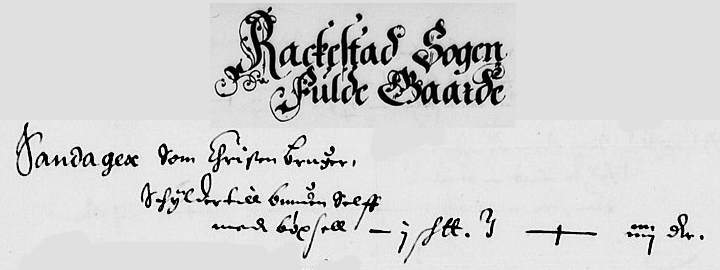 Rackestad Sogen
Fulde Gaarde
Sandager som Christen bruger,
Schylder till bunden Selff
med böxsell — j ſtt.
dlr.